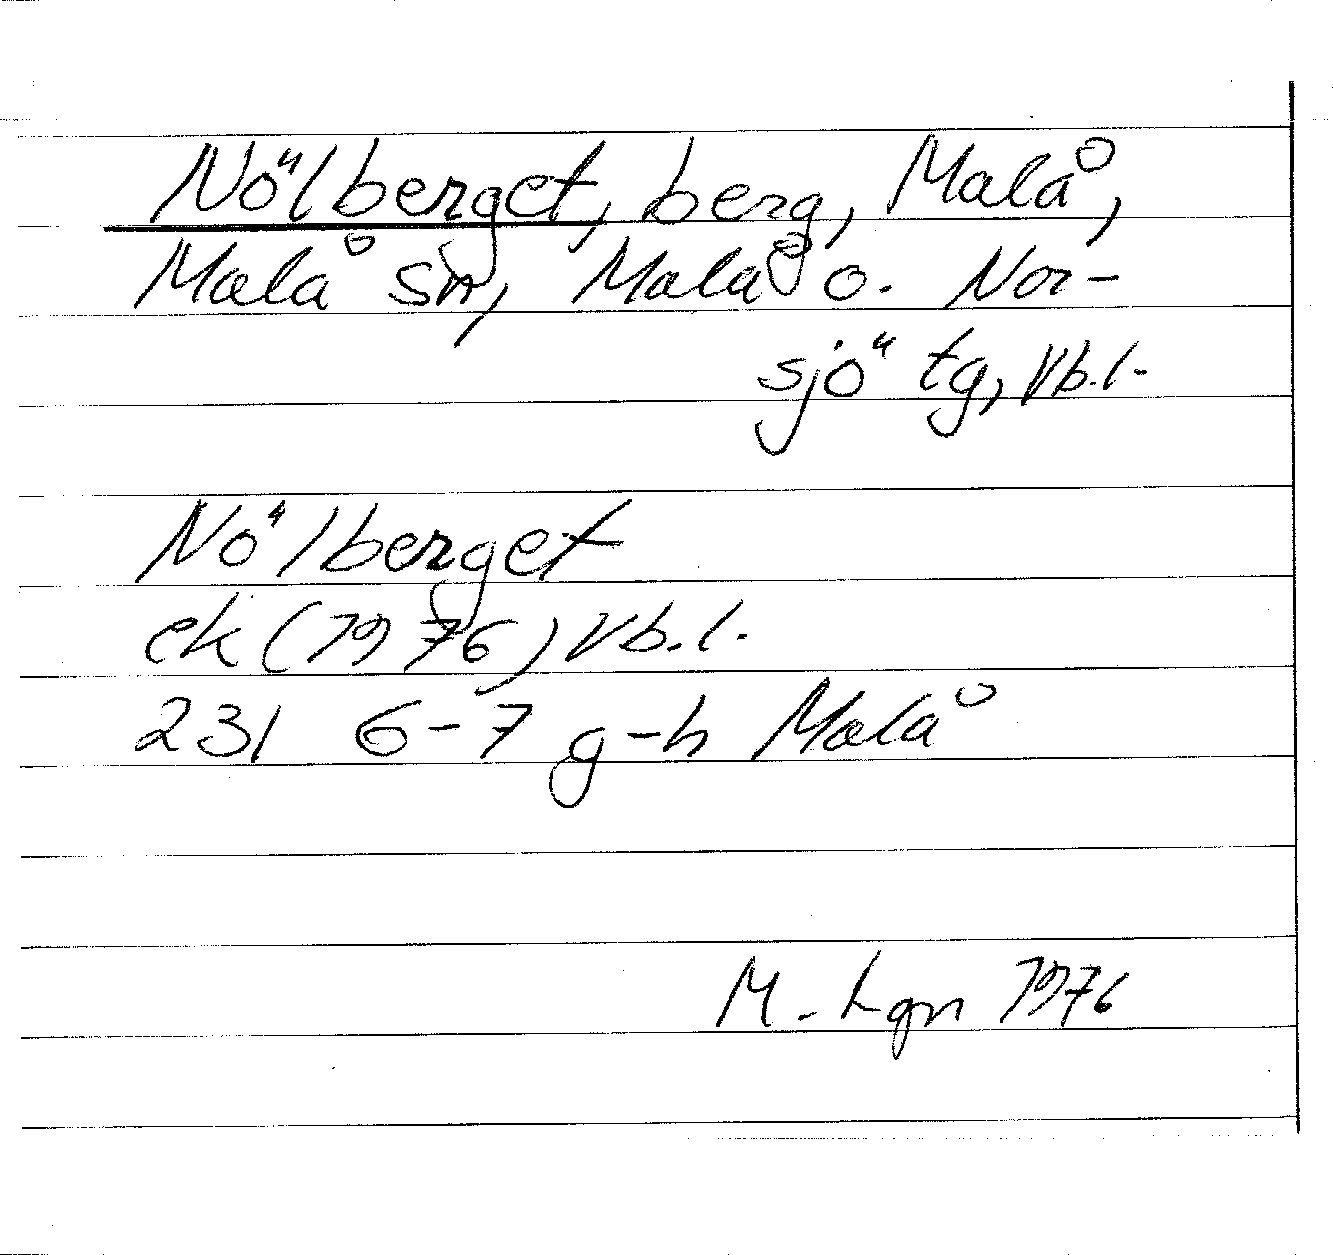 Nölberget, berg, Malå,
Malå sn, Malå o. Nor-
sjö tg, Vb.l.
Nölberget
ek (1976) Vb.l.
231 6-7 g-h Malå
M. Lgn 1976